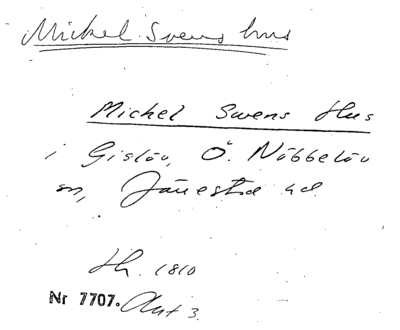 Mickel Svens hus
Michel Swens Hus
i Gislöv, Ö. Nöbbelöv
sn, Järrestad hd
1810
Nr 7707. Akt 3.